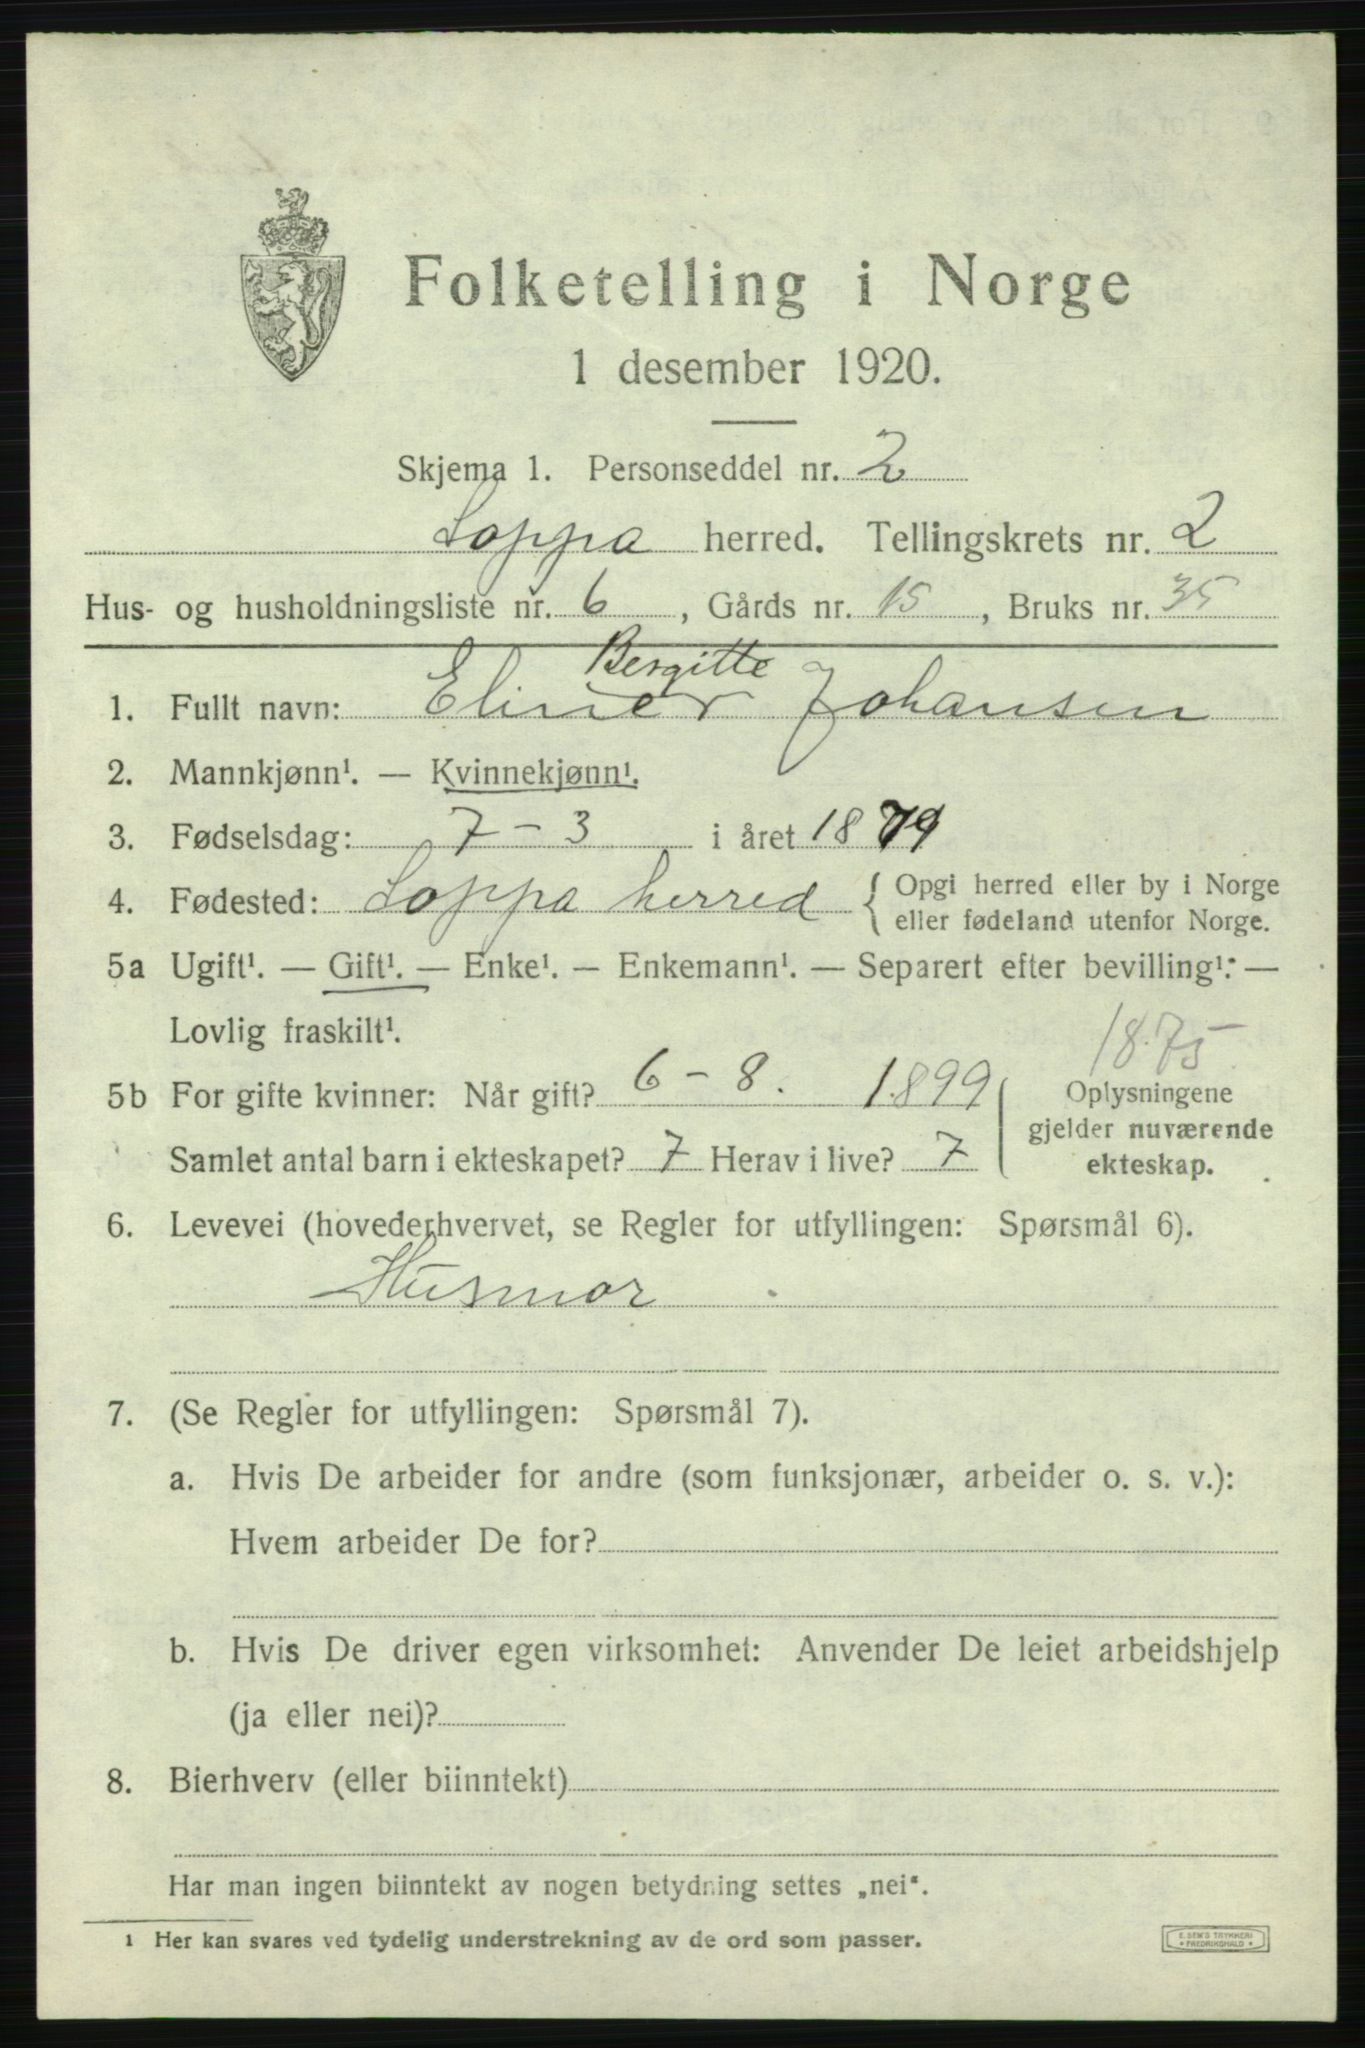 Folketelling i Norge
1 desember 1920.
Skjema 1. Personseddel nr. 2
Loppa herred. Tellingskrets nr. 2
Hus- og husholdningsliste nr. 6, Gårds nr. 15, Bruks nr. 35
Bergitte
1. Fullt navn: Eliner Johansen
2. Mannkjønn¹. — Kvinnekjønn¹.
3. Fødselsdag: 7 - 3 i året 1879
4. Fødested: Loppa herred { Opgi herred eller by i Norge
eller fødeland utenfor Norge.
5a Ugift¹. — Gift¹. — Enke¹. — Enkemann¹. — Separert efter bevilling¹. —
Lovlig fraskilt¹.
1875
5b For gifte kvinner: Når gift? 6 - 8. 1899
Samlet antal barn i ekteskapet? 7 Herav i live? 7
Oplysningene
gjelder nuværende
ekteskap.
6. Levevei (hovederhvervet, se Regler for utfyllingen: Spørsmål 6).
Husmor
7. (Se Regler for utfyllingen: Spørsmål 7).
a. Hvis De arbeider for andre (som funksjonær, arbeider o. s. v.):
Hvem arbeider De for?
b. Hvis De driver egen virksomhet: Anvender De leiet arbeidshjelp
(ja eller nei)?
8. Bierhverv (eller biinntekt)
Har man ingen biinntekt av nogen betydning settes „nei“.
¹ Her kan svares ved tydelig understrekning av de ord som passer.
E. SEM'S TRYKKERI
• FREDRIKSHALD •